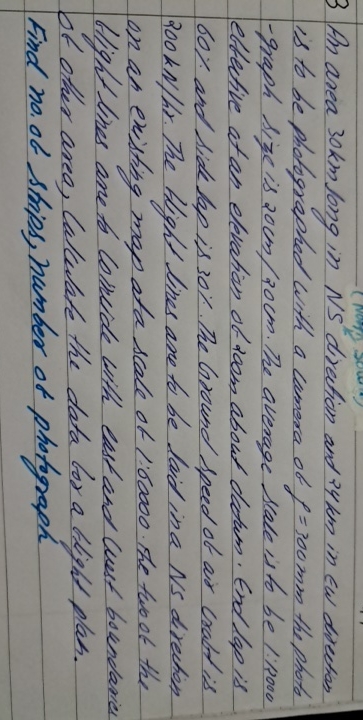 3 An area 30km long in NS direction and 24km in EW direction
is to be photographed with a camera of f = 300mm the photo
-graph size is 20cm/20cm. The average scale is to be 1:12000
effective at an elevation of 400m about datum. End lap is
60% and side lap is 30%. The Ground speed of air craft is
200kN/hr. The flight lines are to be laid in a NS direction
on an existing map at a scale of 1:50000. The two of the
flight lines are to coincide with east and west boundaries
of other area, Calculate the data for a flight plan.
Find no. of strips, number of photograph